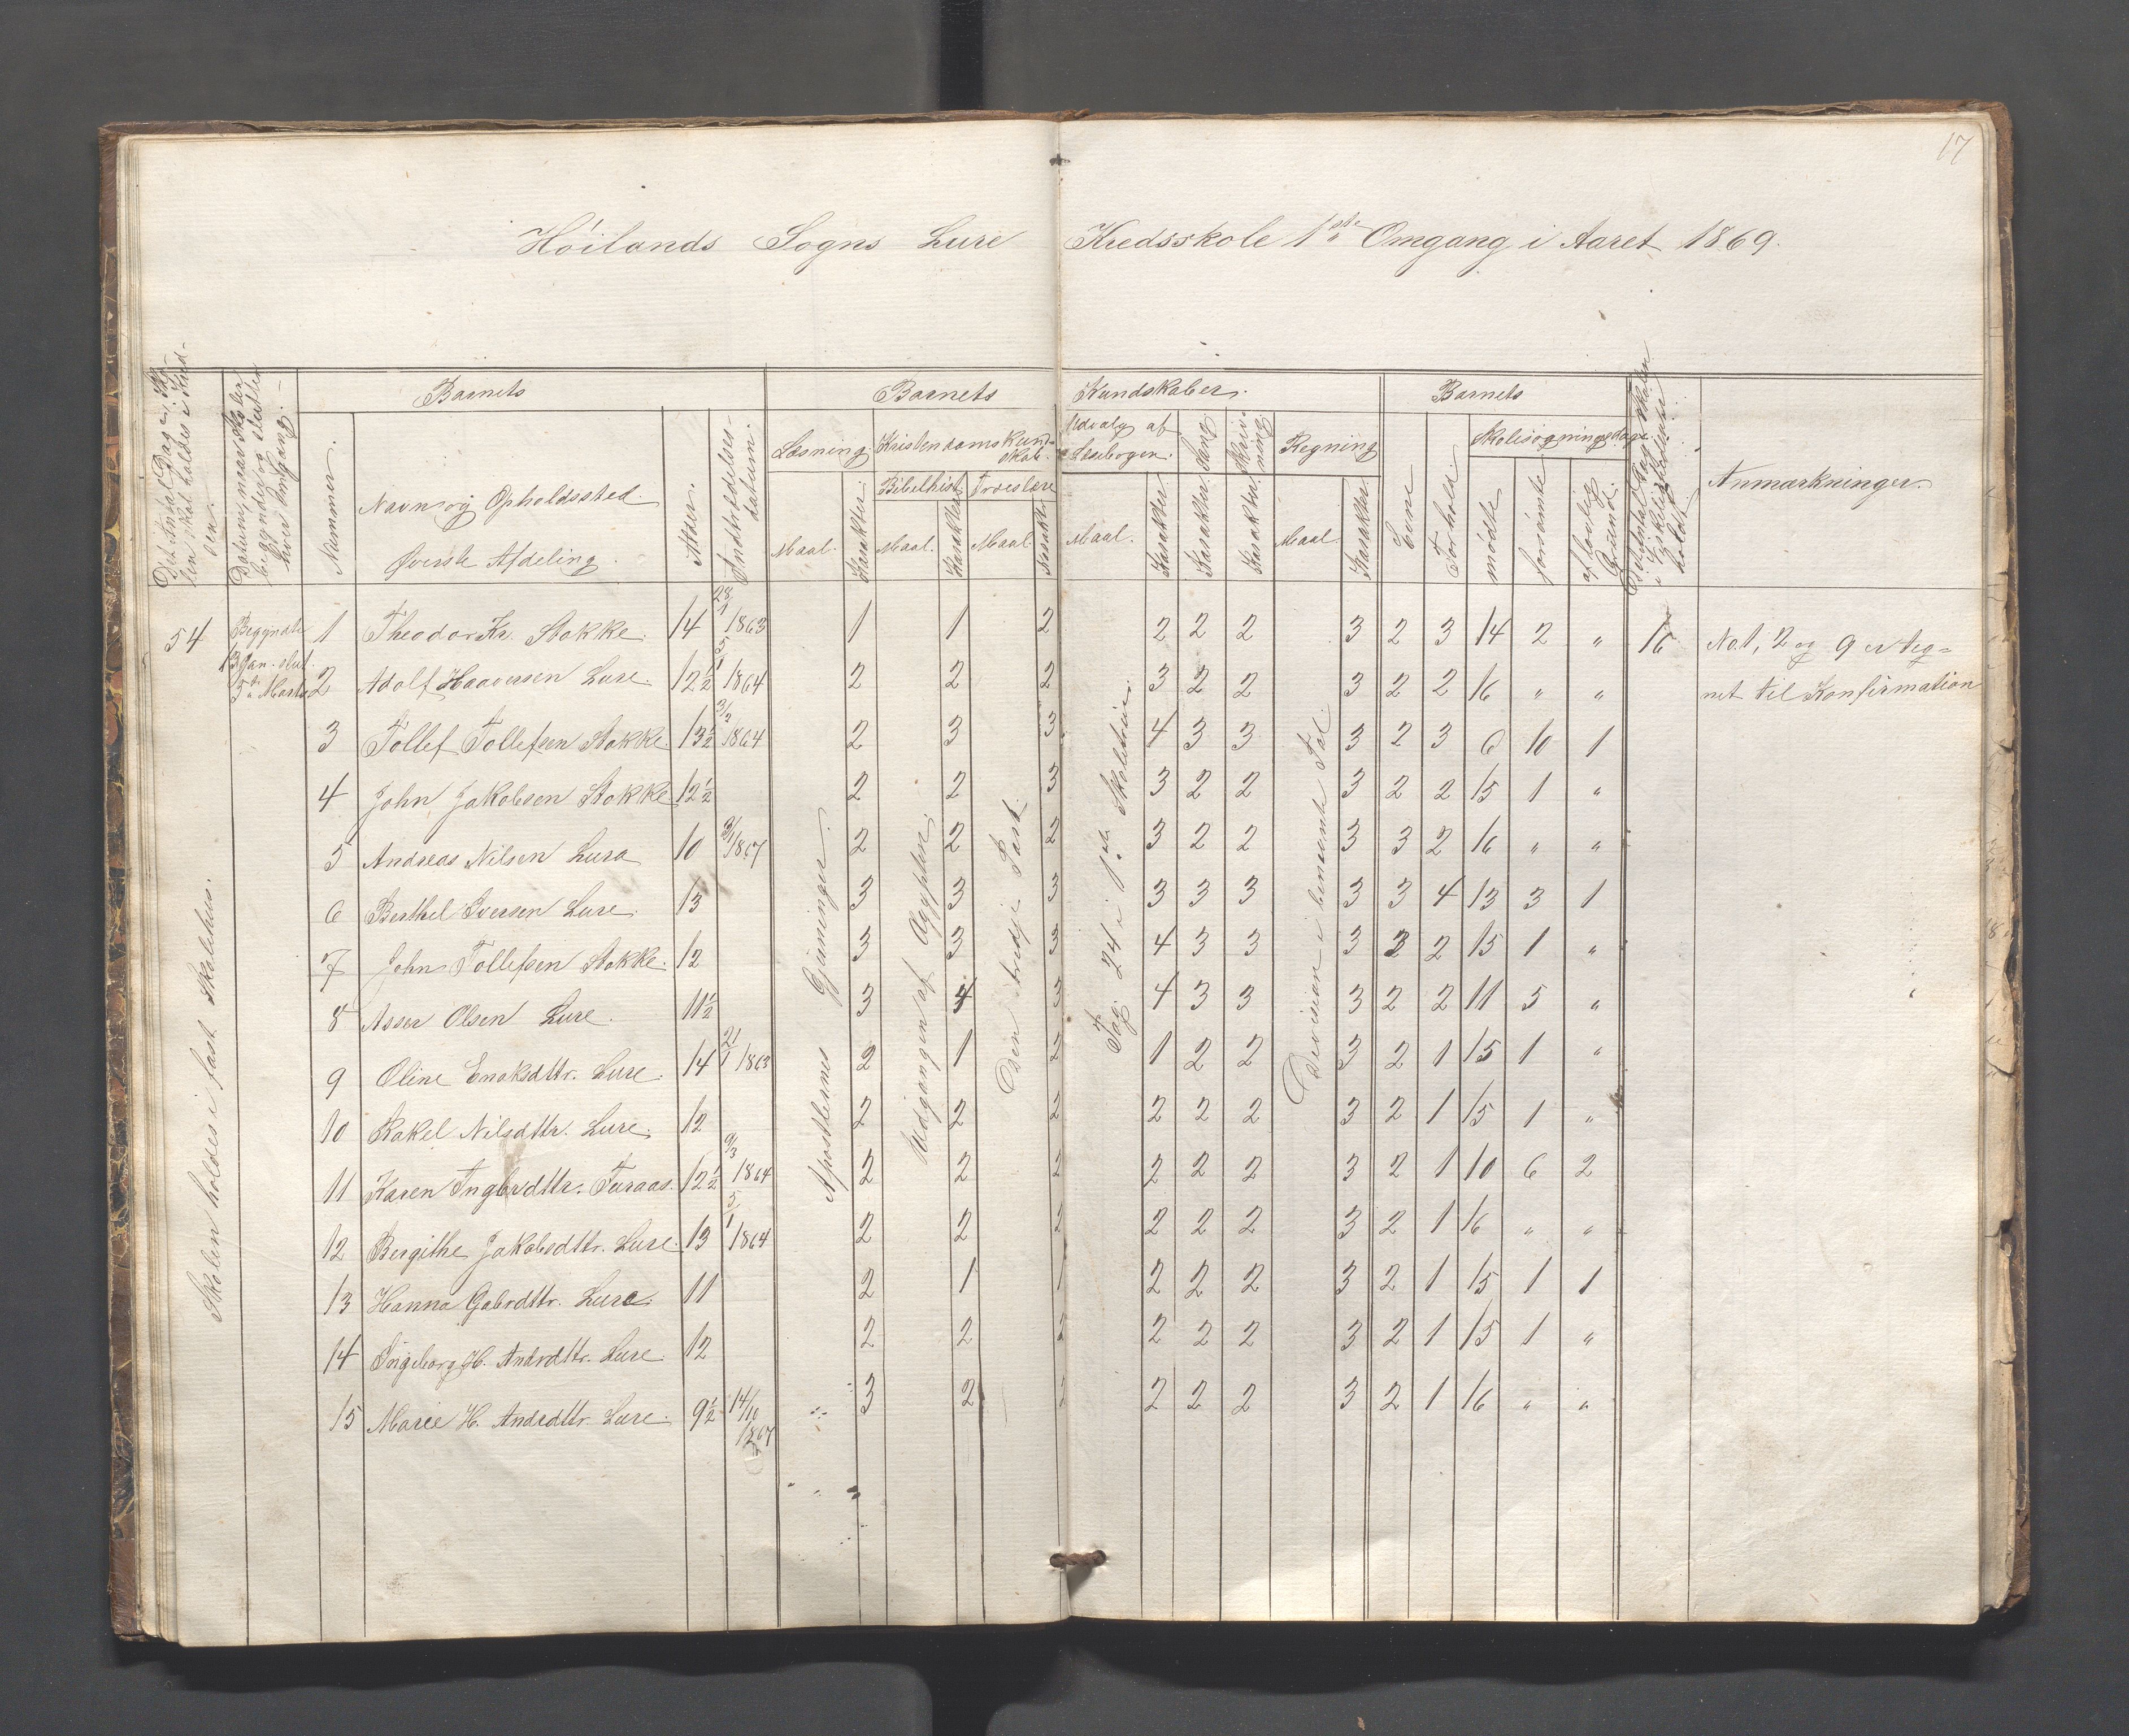 17
Höilands Sogns Lure Kredsskole 1ste Omgang i Aaret 1869.
Det Antal Dage, Skolen skal holdes i Kredsen.
Datum, naar Skolen begyndte og sluttedes hver Omgang.
Barnets
Nummer.
Navn og Opholdssted.
Øverste Afdeling.
Alder.
Indtrædelsesdatum.
Barnets Kundskaber.
Læsning.
Maal. Karakter.
Kristendomskundskab.
Bibelhist.
Maal. Karakter.
Troeslære
Maal. Karakter.
Udvalg af Læsebogen.
Maal. Karakter.
Sang. Karakter.
Skrivning. Karakter.
Regning
Maal. Karakter.
Barnets
Evne
Forhold.
Skolesøgningsdage.
mødte
forsømte
af lovlig Grund.
Anmærkninger.
54 Begyndte 13 Jan. slut. 5te Marts
Skolen holdes i fast Skolehus.
Apostlernes Gjerninger.
Udgangen af Ægypten.
Den tredje Part.
Fag 24 i 1ste Skoletrin.
Division i benævnte Tal.
1 Theodor Kr. Stokke. 14 28/1 1863 1 1 2 2 2 2 3 2 3 14 2 „ 16 No. 1, 2 og 9 er teg=
2 Adolf Haaversen Lure. 12½ 5/1 1864 2 2 2 3 2 2 3 2 2 16 „ „ net til Konfirmation
3 Tollef Tollefsen Stokke. 13½ 3/2 1864 2 3 3 4 3 3 3 2 3 6 10 1
4 John Jakobsen Stokke 12½ 2 2 3 3 2 2 3 2 2 15 1 „
5 Andreas Nilsen Lura 10 3/1 1867 2 2 2 3 2 2 3 3 2 16 „ „
6 Berthel Iversen Lure. 13 3 3 3 3 3 3 3 3 4 13 3 1
7 John Tollefsen Stokke. 12 3 3 3 4 3 3 3 3 2 15 1 „
8 Asser Olsen Lure. 11½ 3 4 3 4 3 3 3 2 2 11 5 „
9 Oline Enoksdttr. Lure. 14 21/1 1863 2 1 2 1 2 2 3 2 1 15 1 „
10 Rakel Nilsdttr. Lure. 12 2 2 2 2 2 2 3 2 1 15 1 „
11 Karen Ingbrdttr. Furaas. 12½ 9/3 1864 2 2 2 2 2 2 3 2 1 10 6 2
12 Bergithe Jakobsdttr. Lure. 13 5/1 1864 2 2 2 2 2 2 3 2 1 16 „ „
13 Hanna Gabrdttr. Lure. 11 2 1 1 2 2 2 3 2 1 15 1 1
14 Ingeborg H. Andrdttr. Lure. 12 2 2 2 2 2 2 3 2 1 15 1 „
15 Marie H. Andrdttr. Lure. 9½ 14/10 1867 3 2 2 2 2 3 2 1 16 „ „